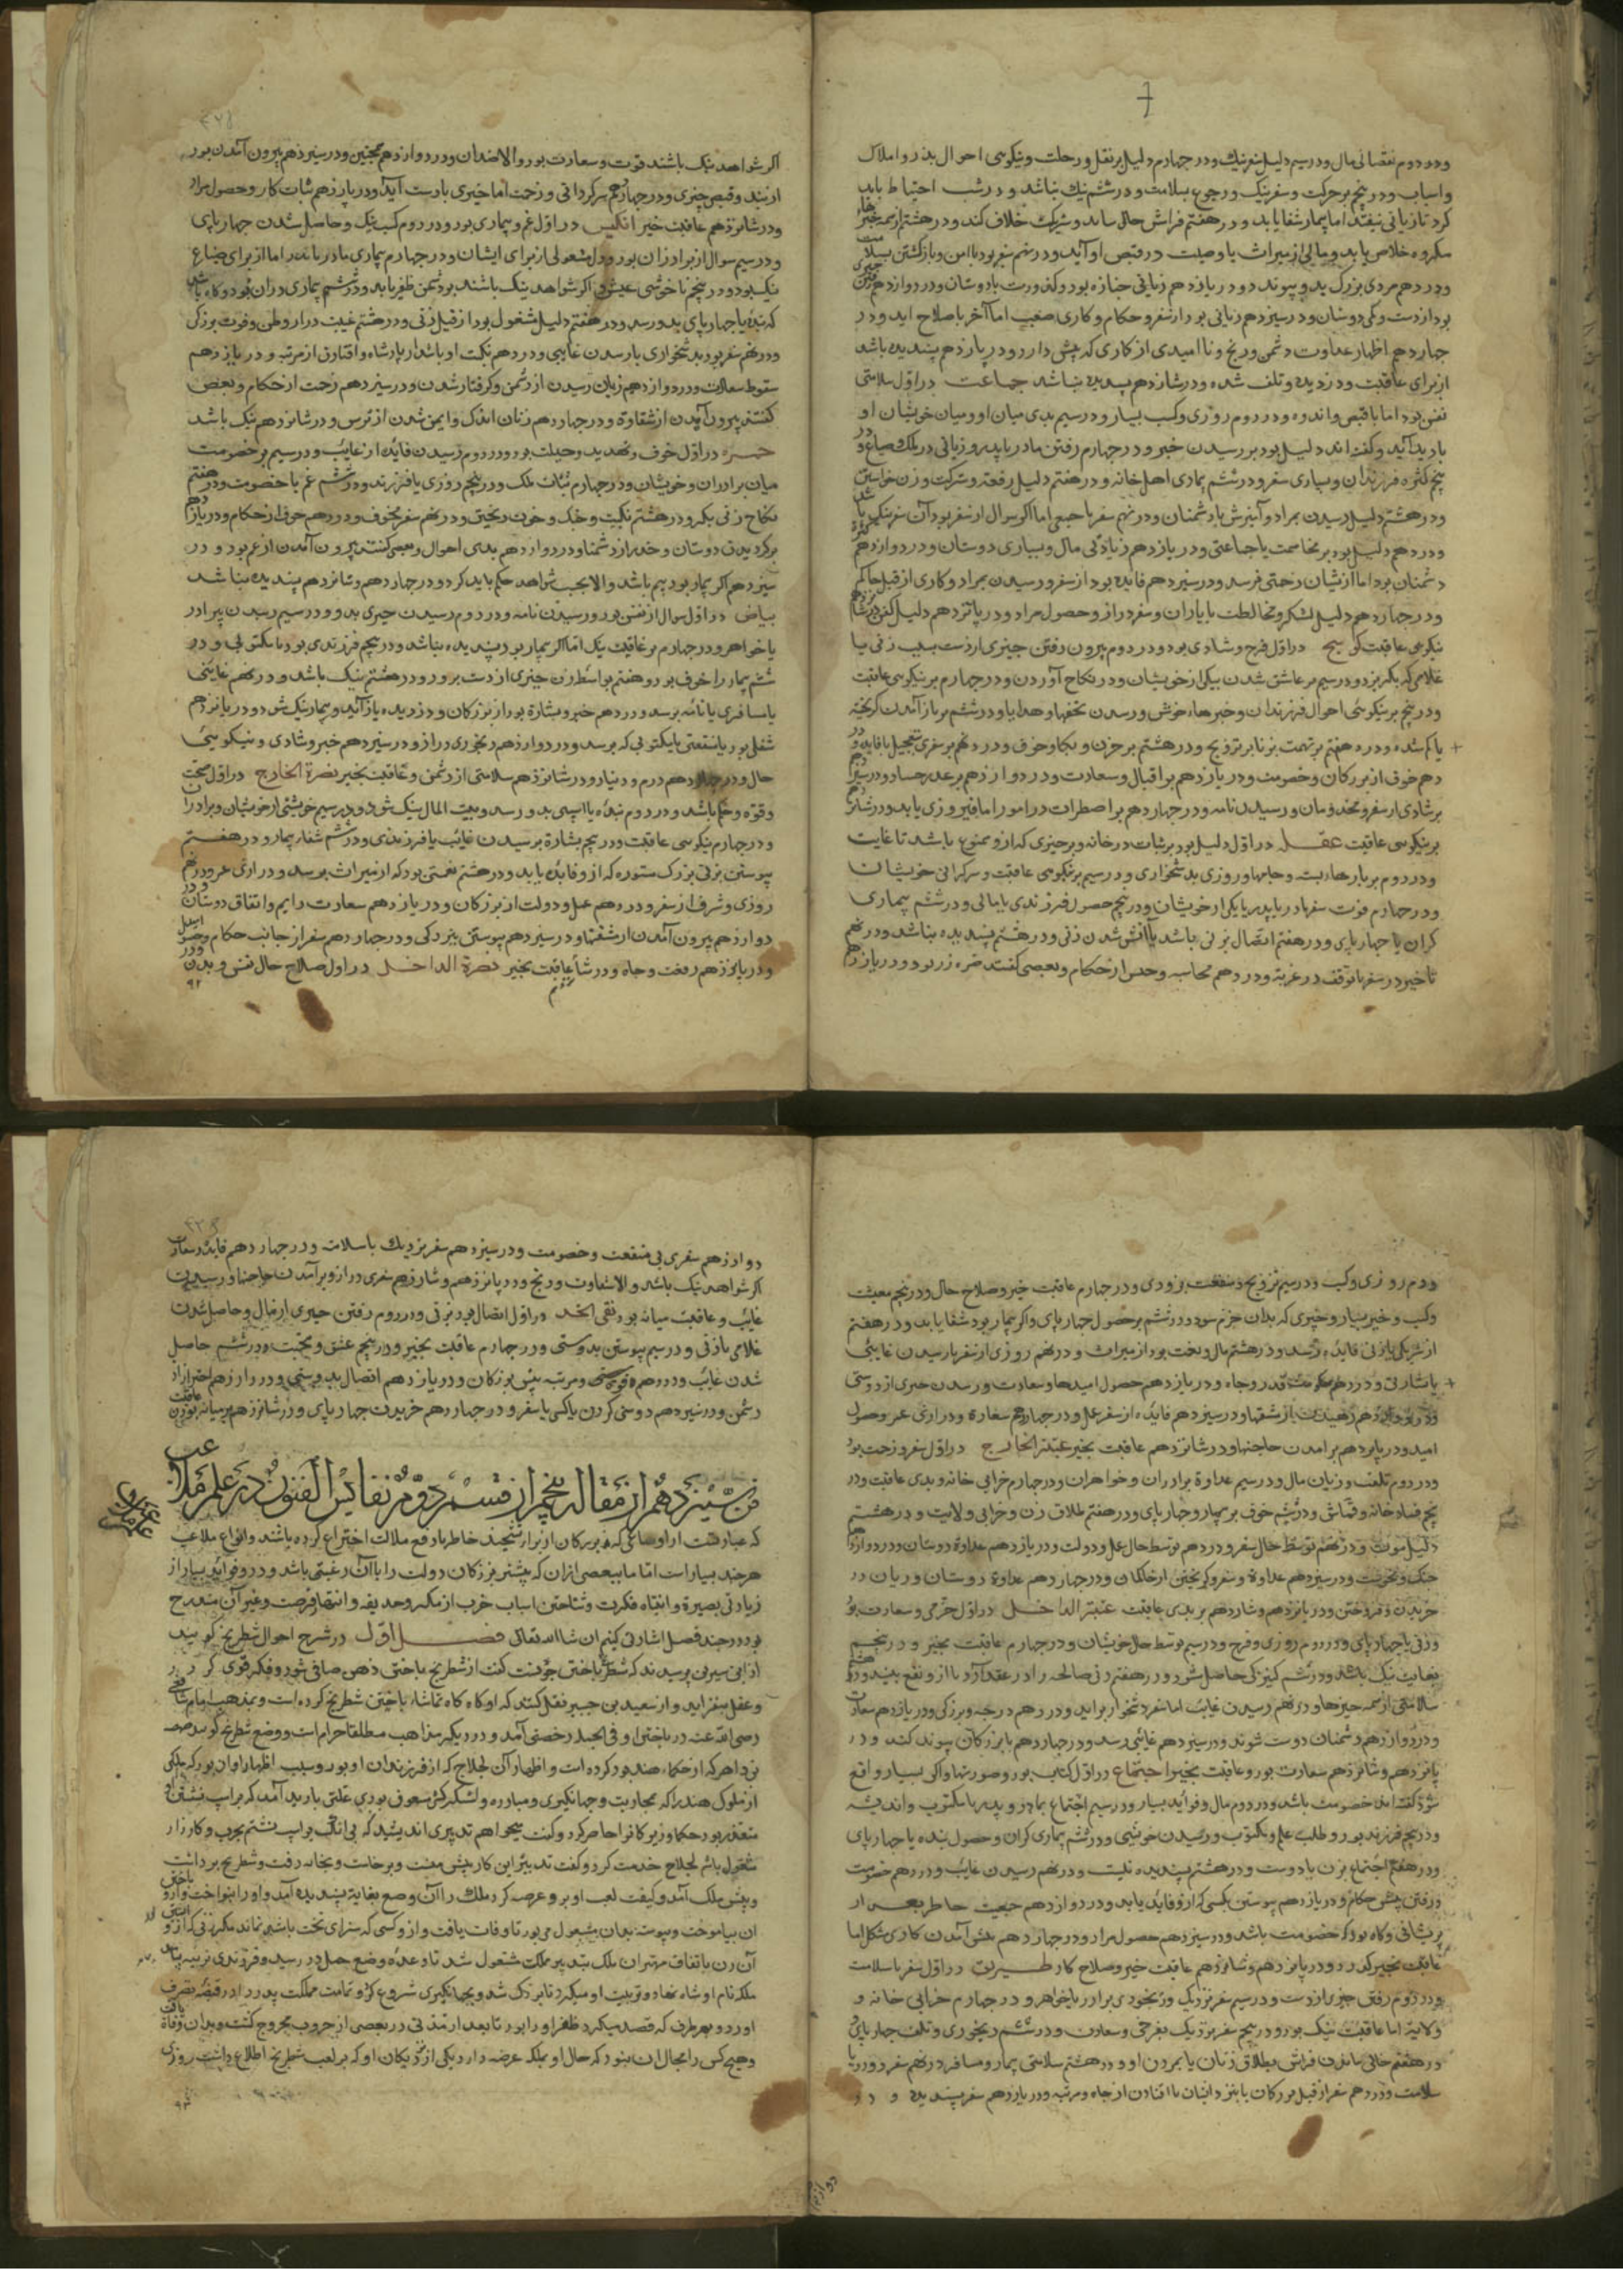 ودوم نقصانی مال ودر سیم دلیل سفر نیک ودر چهارم دلیل بر نقل ورحلت ونیکوی احوال پدر واملاک
واسباب ودر پنجم بر حرکت وسفر نیک ورجوع بسلامت ودر ششم نیک نباشد ودر شب احتیاط باید
کرد تا زیانی نیفتد اما بیمار شفا یابد ودر هفتم فراش حال ساند وشریک خلاف کند ودر هشتم از همه
مکروه خلاص یابد ومالی از میراث یا وصیت در قبض او آید ودر نهم سفر بود با امن وباز گشتن بسلامت
ودر دهم مردی بزرگ پیوندد ودر یازدهم زیانی بود وکدورت با دوستان ودر دوازدهم
ودر سیزدهم زیانی بود از سفر وحکام وکاری صعب اما آخر باصلاح آید ودر
چهاردهم اظهار عداوت دشمن ورنج ونا امیدی از کاری که پیش دارد ودر پازدهم پسندیده باشد
از برای عاقبت ودزدیده وتلف شده ودر شانزدهم پسندیده نباشد جماعت در اول سلامتی
نفس بود اما با قبض واندوه ودر دوم روزی وکسب بسیار ودر سیم بدی میان او ومیان خویشان او
بادید آید وگفته اند دلیل بود بر رسیدن خبر ودر چهارم رفتن مادر یا پدر وزیانی در ملک وضیاع ودر
پنجم کثرة فرزندان وبسیاری سفر ودر ششم بیماری اهل خانه ودر هفتم دلیل رفعة وشرکت وزن خواستن
ودر هشتم دلیل رسیدن بمراد وآمیزش با دشمنان ودر نهم سفر با جمعی اما اگر سوال از سفر بود آن سفر نیک باشد
ودر دهم دلیل بود بر مخاصمت با جماعتی ودر یازدهم زیادتی مال وبسیاری دوستان ودر دوازدهم کثرة
دشمنان بود اما از ایشان زحمتی نرسد ودر سیزدهم فایده بود از سفر ورسیدن بمراد وکاری از قبل حاکم
ودر چهاردهم دلیل لشکر ومخالطت با یاران وسفر دراز وحصول مراد ودر پانزدهم دلیل
نیکویی عاقبت کوسج در اول فرح وشادی بود ودر دوم بیرون رفتن چیزی از دست بسبب زنی یا
غلامی که بگریزد ودر سیم بر عاشق شدن بیکی از خویشان ودر نکاح آوردن ودر چهارم بر نیکویی عاقبت
ودر پنجم بر نیکوئی احوال فرزندان وخبرهای خوش ورسیدن تحفها وهدایا ودر ششم بر باز آمدن گریخته
یا گم شده ودر هفتم بر تهمت بزنا بر تزویج ودر هشتم بر حزن وبکا وخوف ودر نهم بر سفری بتعجیل با فایده ودر
دهم خوف از بزرگان وخصومت ودر یازدهم بر اقبال وسعادت ودر دوازدهم بر غدر حساد ودر سیزدهم
بر شادی از سفر ومخدومان ورسیدن نامه ودر چهاردهم بر اضطراب در امور اما فیروزی یابد ودر شانزدهم
بر نیکویی عاقبت عقله در اول دلیل بود بر ثبات در خانه وبر چیزی که از و ممنوع باشد تا غایت
ودر دوم بر بار وروزی بدشخواری ودر سیم بر نیکویی عاقبت وسرگرانی خویشان
ودر چهارم فوت سفر یا پدر یا یکی از خویشان ودر پنجم حصول فرزندی با مالی ودر ششم بیماری
گران یا چهارپای ودر هفتم اتصال بزنی باشد یا آبستن شدن زنی ودر هشتم پسندیده نباشد ودر نهم
تاخیر در سفر یا توقف در غربة ودر دهم محاسبه وحبس از حکام وبعضی گفتند ودر یازدهم
اگر شواهد نیک باشند قوت وسعادت بود والا ضد آن ودر دوازدهم همچنین ودر سیزدهم بیرون آمدن بود
از بند وقبض چیزی ودر چهاردهم سرگردانی وزحمت اما چیزی با دست آید ودر پازدهم ثبات کار وحصول مراد
ودر شانزدهم عاقبت خیر انکیس در اول غم وبیماری بود ودر دوم کسب نیک وحاصل شدن چهارپای
ودر سیم سوال از برادران بود ودل مشغولی از برای ایشان ودر چهارم بیماری مادر یا پدر اما از برای ضیاع
نیک بود ودر پنجم ناخوشی عیش واگر شواهد نیک باشند بر دشمن ظفر یابد ودر ششم بیماری دران بود وگاه باشد
که بنده یا چهارپای بدو رسد ودر هفتم دلیل مشغولی بود از قبل زنی ودر هشتم غیبت در از وطن وفوت بزرگی
ودر نهم سفر بود بدشخواری یا رسیدن غایبی ودر دهم نکبت او باشد از پادشاه وافتادن از مرتبه ودر یازدهم
سقوط سعادت ودر دوازدهم زیان رسیدن از دشمن وگرفتار شدن ودر سیزدهم زحمت از حکام وبعضی
گفتند بیرون آمدن از شقاوة ودر چهاردهم زنان اندک وایمن شدن از ترس ودر شانزدهم نیک باشد
حمره در اول خوف وتهدید وحیلت بود ودر دوم رسیدن فایده از غایب ودر سیم بر خصومت
میان برادران وخویشان ودر چهارم ثبات ملک ودر پنجم روزی یا فرزند ودر ششم غم یا خصومت ودر هفتم
نکاح زنی بکر ودر هشتم نکبت وجنگ وخون ریختن ودر نهم سفر مخوف ودر دهم خوف از حکام ودر یازدهم
برگردیدن دوستان وحذر از دشمنان ودر دوازدهم بدی احوال وبعضی گفتند بیرون آمدن از غم بود ودر
سیزدهم اگر بیمار بود بیم باشد والا بحسب شواهد حکم باید کرد ودر چهاردهم وشانزدهم پسندیده نباشد
بیاض در اول سوال از نفس بود ورسیدن نامه ودر دوم رسیدن چیزی بدو ودر سیم رسیدن برادر
یا خواهر ودر چهارم بر عاقبت نیک اما اگر بیمار بود پسندیده نباشد ودر پنجم فرزندی بود یا مکتوبی ودر
ششم بیمار را خوف بود وهفتم بواسطه زن چیزی از دست برود ودر هشتم نیک باشد ودر نهم غایبی
یا مسافری یا نامه برسد ودر دهم خبر وبشارة بود از بزرگان ودزدیده باز آید وبیمار نیک شود ودر یازدهم
شغلی بود با منفعتی یا مکتوبی که برسد ودر دوازدهم رنجوری دراز ودر سیزدهم خبر وشادی ونیکوئی
حال ودر چهاردهم درم ودینار ودر شانزدهم سلامتی از دشمن وعاقبت بخیر نصرة الخارج در اول صحت
وقوة وحکم باشد ودر دوم بنده یا اسپی بدو رسد وبیت المال نیک شود ودر سیم خویشی از خویشان وبرادران
ودر چهارم نیکویی عاقبت ودر پنجم بشارة برسیدن غایب یا فرزندی ودر ششم شفاء بیمار ودر هفتم
پیوستن بزنی بزرگ ستوده که از و فایده یابد ودر هشتم نعمتی بود که از میراث برسد ودرازی عمر ودر نهم
روزی وشرف از سفر ودر دهم عمل ودولت از بزرگان ودر یازدهم سعادت دایم واتفاق دوستان ودر
دوازدهم بیرون آمدن از شقتها ودر سیزدهم پیوستن ببزرگی ودر چهاردهم سفر از جانب حکام وحصول
ودر پانزدهم رفعت وجاه ودر شانزدهم عاقبت بخیر نصرة الداخل در اول صلاح حال نفس وبدن ودر
٩٢
ودوم روزی وکسب ودر سیم تزویج ومنفعت بزودی ودر چهارم عاقبت خیر وصلاح حال ودر پنجم معیشت
وکسب وخیر بسیار وخبری که بدان خرم شود ودر ششم بر حصول چهارپای واگر بیمار بود شفا یابد ودر هفتم
از شریکی یا زنی فایده رسد ودر هشتم مال وبخت بود از میراث ودر نهم روزی از سفر یا رسیدن غایبی
یا بشارتی ودر دهم قدر وجاه ودر یازدهم حصول امیدها وسعادت ورسیدن خبری از دوستی
ودر دوازدهم رهیدن از شقتها ودر سیزدهم فایده از سفر وعمل ودر چهاردهم سعادة ودرازی عمر وحصول
امید ودر پانزدهم برآمدن حاجتها ودر شانزدهم عاقبت بخیر عتبة الخارج در اول سفر وزحمت بود
ودر دوم تلف وزیان مال ودر سیم عداوة برادران وخواهران ودر چهارم خرابی خانه وبدی عاقبت ودر
پنجم فساد خانه وقماش ودر ششم خوف بر بیمار وچهارپای ودر هفتم طلاق زن وخرابی ولایت ودر هشتم
دلیل موت ودر نهم توسط حال سفر ودر دهم توسط حال عمل ودولت ودر یازدهم عداوة دوستان ودر دوازدهم
جنگ وخصومت ودر سیزدهم عداوة وسفر وگریختن از حکام ودر چهاردهم عداوة دوستان وزیان در
خریدن وفروختن ودر پانزدهم وشانزدهم بر بدی عاقبت عتبة الداخل در اول خرمی وسعادت بود
وزنی یا چهارپای ودر دوم روزی وفرح ودر سیم توسط حال خویشان ودر چهارم عاقبت بخیر ودر پنجم
بغایت نیک باشد ودر ششم کنیزکی حاصل شود ودر هفتم زنی صالحه را در عقد آرد یا از و نفع بیند ودر هشتم
سلامتی از همه چیزها ودر نهم رسیدن غایب اما سفر دشخوار برآید ودر دهم درجه وبزرگی ودر یازدهم سعادت
ودر دوازدهم دشمنان دوست شوند ودر سیزدهم غایبی رسد ودر چهاردهم با بزرگان پیوند کند ودر
پانزدهم وشانزدهم سعادت بود وعاقبت بخیر اجتماع در اول کتب بود وصورتها واگر بسیار واقع
شود گفته اند خصومت باشد ودر دوم مال وفواید بسیار ودر سیم اجتماع بمادر وپدر یا مکتوب واندیشه
ودر پنجم فرزند بود وطلب علم ومکتوب ورسیدن خویشی ودر ششم بیماری گران وحصول بنده یا چهارپای
ودر هفتم اجتماع بزن یا دوست ودر هشتم پسندیده نیست ودر نهم رسیدن غایب ودر دهم خصومت
ورفتن پیش حکام ودر یازدهم پیوستن بکسی که از و فایده یابد ودر دوازدهم جمعیت خاطر بعد از
پریشانی وگاه بود که خصومت باشد ودر سیزدهم حصول مراد ودر چهاردهم پیش آمدن کاری مشکل اما
عاقبت بخیر گردد ودر پانزدهم وشانزدهم عاقبت خیر وصلاح کار طریق در اول سفر با سلامت
ودر دوم رفتن چیزی از دست ودر سیم سفر نزدیک ورنجوری برادر یا خواهر ودر چهارم خرابی خانه و
ولایة اما عاقبت نیک بود ودر پنجم سفر نزدیک بفرحی وسعادت ودر ششم رنجوری وتلف چهارپای
ودر هفتم خالی ماندن فراش بطلاق زنان یا بمردن او ودر هشتم سلامتی بیمار ومسافر ودر نهم سفر دور با
سلامت ودر دهم سفر از قبل بزرگان یا بنزد ایشان یا افتادن از جاه ومرتبه ودر یازدهم سفر پسندیده ودر
دوازدهم
دوازدهم سفری بی منفعت وخصومت ودر سیزدهم سفر نزدیک با سلامت ودر چهاردهم فایده وسعادت
اگر شواهد نیک باشد والا شقاوت ورنج ودر پانزدهم وشانزدهم سفری دراز وبرآمدن حاجتها ورسیدن
غایب وعاقبت میانه بود نقی الخد در اول اتصال بود بزنی ودر دوم رفتن چیزی از مال وحاصل شدن
غلامی یا زنی ودر سیم پیوستن بدوستی ودر چهارم عاقبت بخیر ودر پنجم عشق ومحبت ودر ششم حاصل
شدن غایب ودر دهم ومرتبه پیش بزرگان ودر یازدهم اتصال بدوستی ودر دوازدهم احتراز از
دشمن ودر سیزدهم دوستی کردن با کسی یا سفر ودر چهاردهم خریدن چهارپای ودر شانزدهم بر میانه بودن عاقبت
فن سیزدهم از مقاله پنجم از قسم دوم نفایس الفنون در علم ملاعب
که عبارتست از اوضاعی که بزرگان از برای تشحیذ خاطر یا دفع ملالت اختراع کرده باشند وانواع ملاعب
هرچند بسیارست اما ما ببعضی ازان که بیشتر بزرگان دولت را با آن رغبتی باشد ودر و فواید بسیار از
زیادتی بصیرة وانتباه فکرت وشناختن اسباب حرب از مکر وخدیعه وانتهاز فرصت وغیر آن مندرج
بود در چند فصل اشارتی کنیم ان شاالله تعالی فصل اول در شرح احوال شطرنج گویند
از ابن سیرین پرسیدند که شطرنج باختن چونست گفت از شطرنج باختن ذهن صافی شود وفکر قوی گردد
وعقل بیفزاید واز سعید بن جبیر نقل کنند که او گاه گاه تماشاء باختن شطرنج کرده است وبمذهب امام شافعی
رضی الله عنه در باختن او فی الجمله رخصتی آمد ودر دیگر مذاهب مطلقا حرام است ووضع شطرنج گویند صصه
بن داهر که از حکماء هند بود کرده است واظهار آن لجلاج که از فرزندان او بود وسبب اظهار او آن بود که ملکی
از ملوک هند را که بمحاربت وجهانگیری ومبارزه ولشکرکشی مشعوف بودی علتی بادید آمد که بر اسپ نشستن او
متعذر بود حکما ووزیر کافی را حاضر کرد وگفت میخواهم تدبیری اندیشید که بی آنک بر اسپ نشینم بحرب وکارزار
مشغول باشم لجلاج خدمت کرد وگفت تدبیر این کار پیش منست وبرخاست وبخانه رفت وشطرنج برداشت
وپیش ملک آمد وکیفیت لعب او بر و عرضه کرد ملک را آن وضع بغایة پسندیده آمد واو را بنواخت وباختن
آن بیاموخت وپیوسته بدان مشغول می بود تا وفات یافت واز و کسی که سزای تخت باشد نماند مگر زنی که از و آبستن
آن زن باتفاق مهتران ملک بتدبیر مملکت مشغول شد تا وعده وضع حمل در رسید وفرزندی نرینه بیاورد
ملکه نام او شاه نهاد وتربیت او میکرد تا بزرگ شد وبجهانگیری شروع کرد وتمامت مملکت پدر را در قبضه تصرف
آورد وبهر طرف که قصد میکرد ظفر او را بود تا بعد از مدتی در بعضی از حروب مجروح گشت وبدان وفاة یافت
وهیچ کس را مجال آن نبود که حال او بملکه عرضه دارد یکی از نزدیکان او که بر لعب شطرنج اطلاع داشت روزی
٩٣